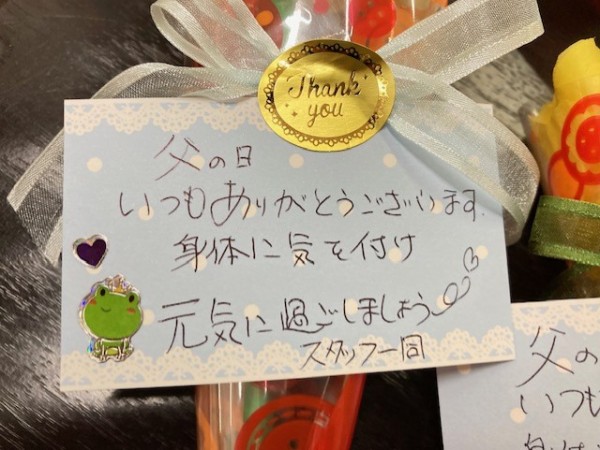 Thank
you
父の日
いつもありがとうございます.
身体に気を付け
元気に過ごしましょう
スタッフ一同
父の
いつも
身体に